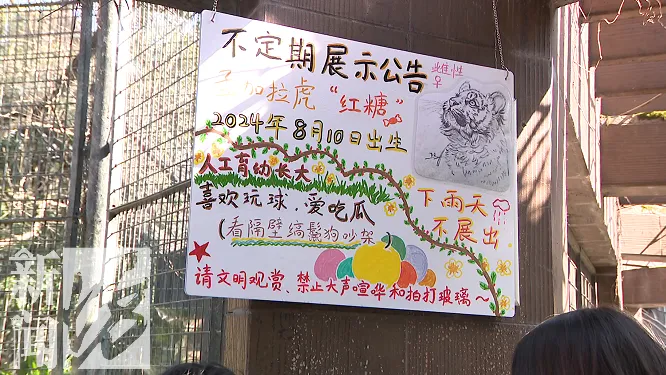 不定期展示公告
孟加拉虎“红糖”
雌性♀
2024年8月10日出生
人工育幼长大
喜欢玩球、爱吃瓜
(看隔壁缟鬣狗吵架)
下雨天
不展出
★请文明观赏、禁止大声喧哗和拍打玻璃~
新闻